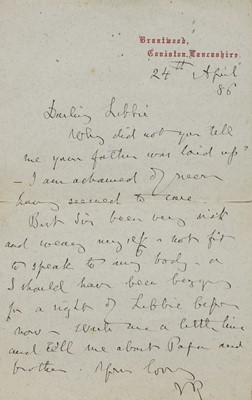 Brantwood,
Coniston, Lancashire.
24th April
86
Darling Libbie
Why did not you tell
me your father was laid up?
- I am ashamed of never
having seemed to care
But I've been very sick
and weary myself & not fit
to speak to any body - or
I should have been begging
for a sight of Libbie before
now - write me a little line
and tell me about Papa and
brother. Your loving
JR